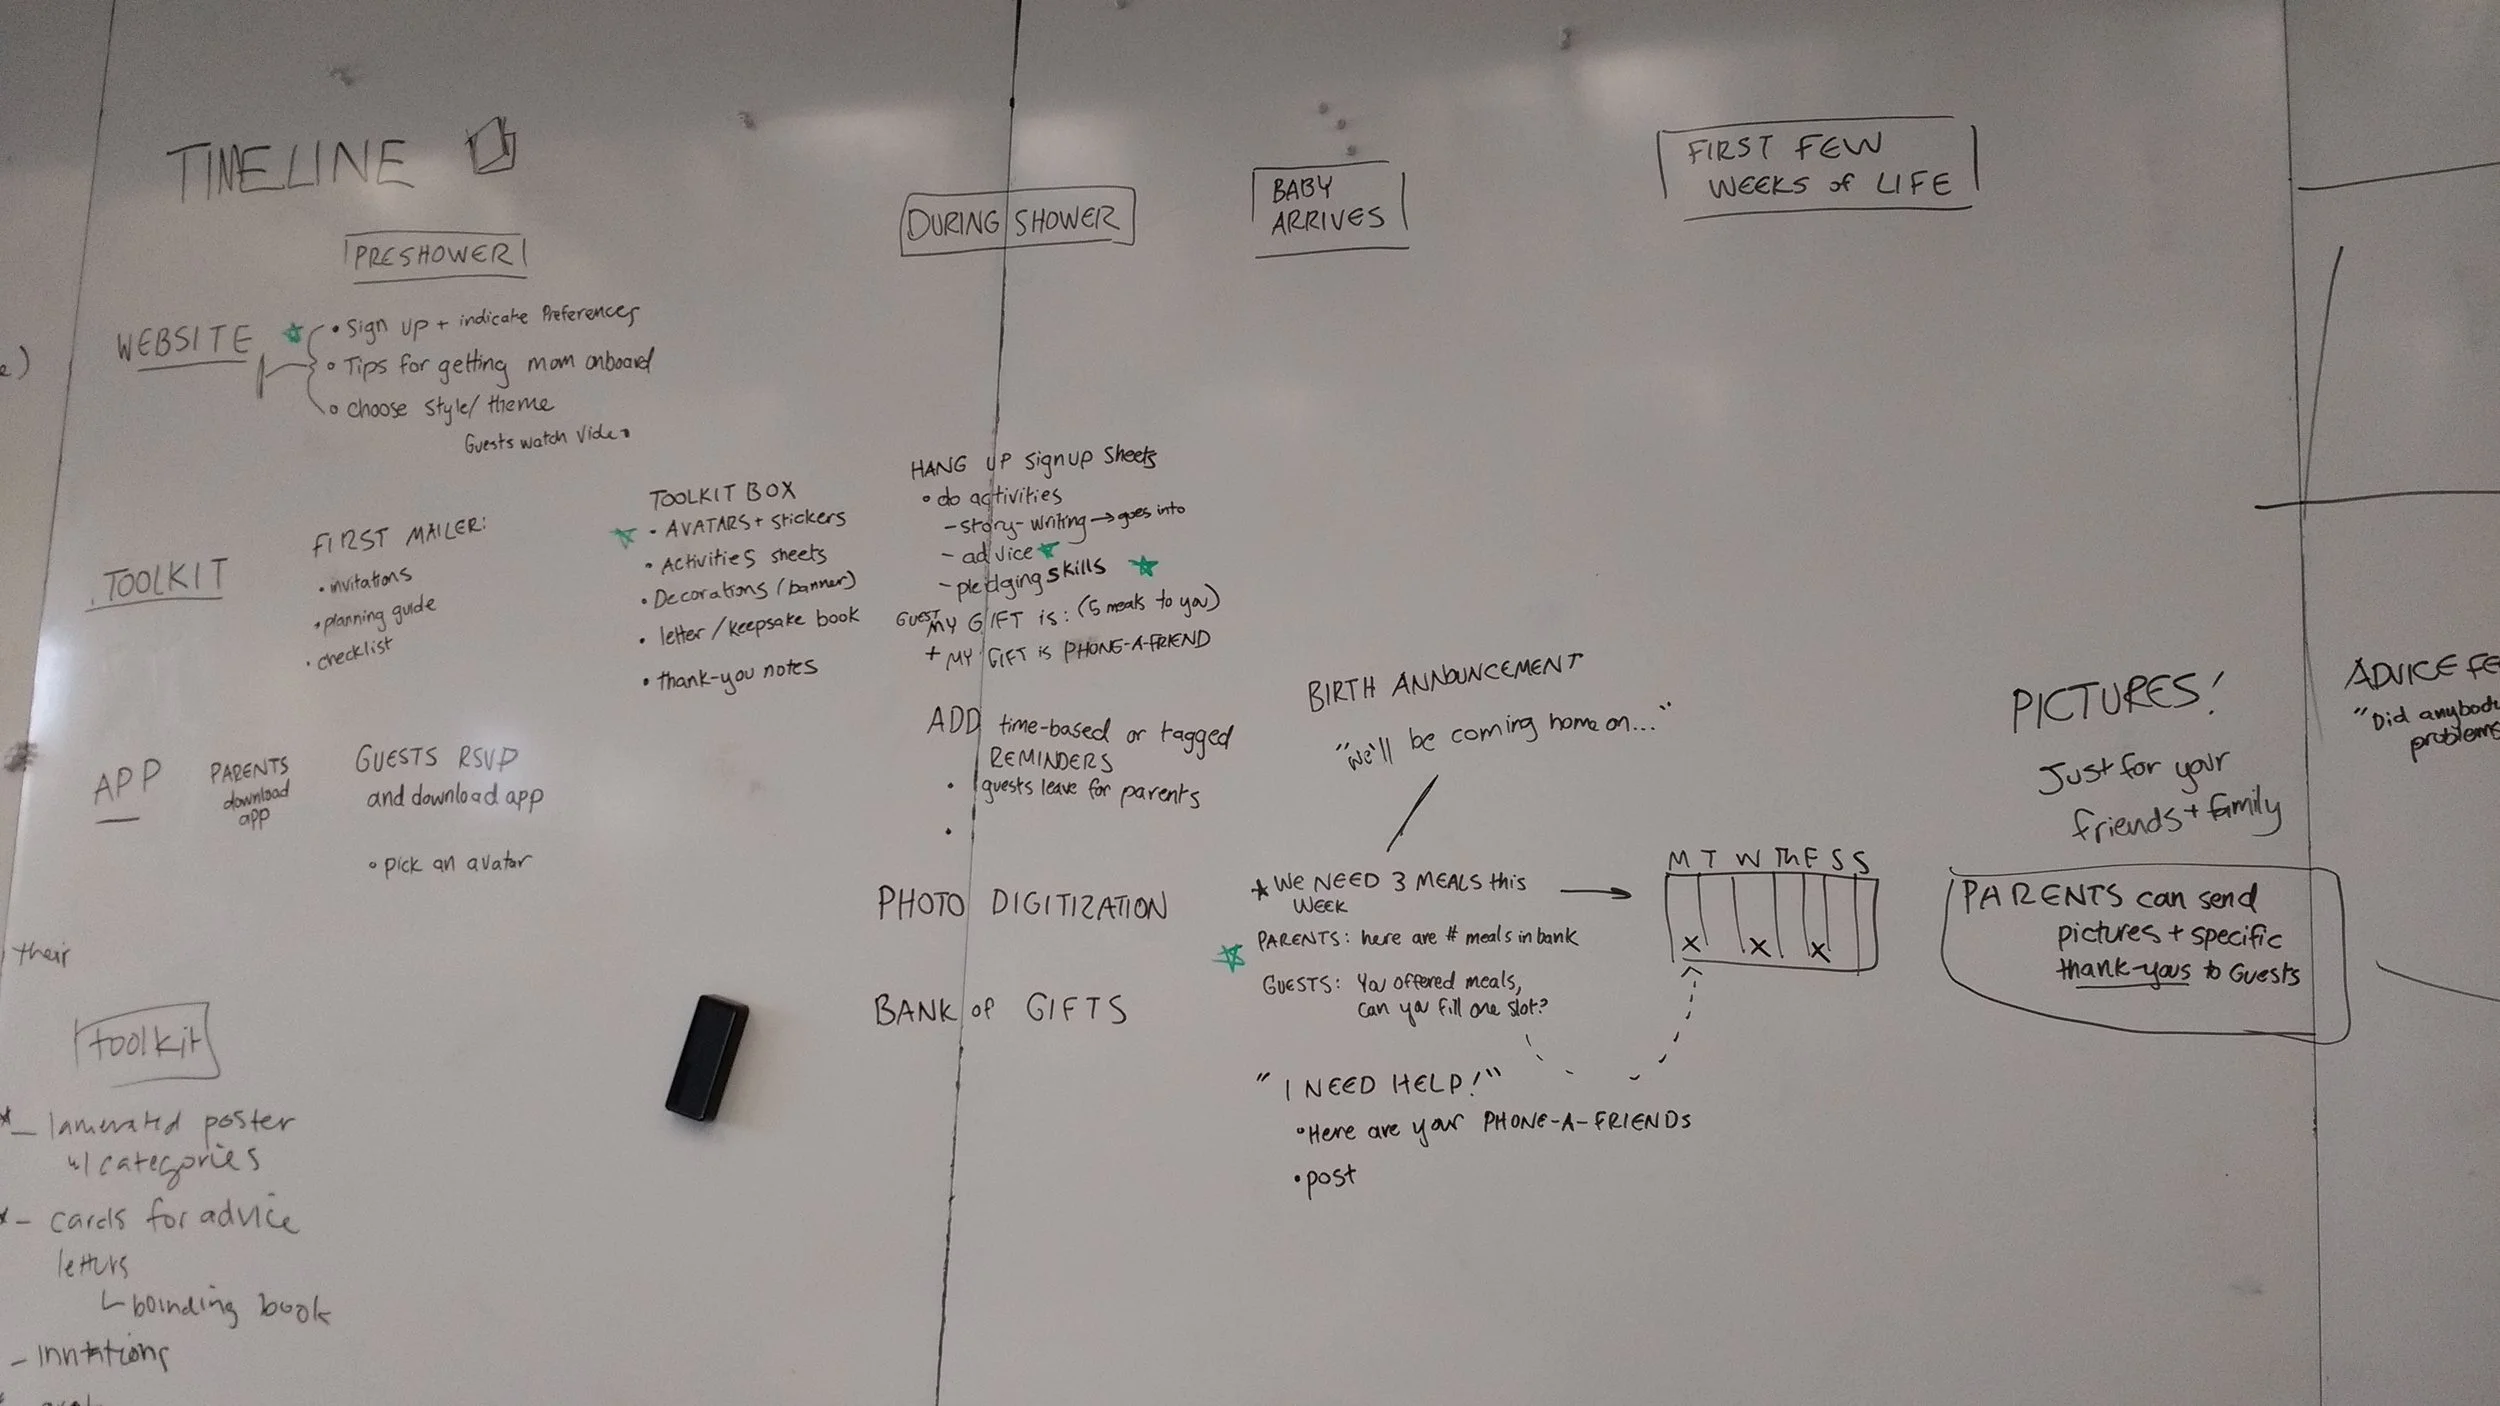 TIMELINE
PRESHOWER
DURING SHOWER
BABY
ARRIVES
FIRST FEW
WEEKS of LIFE
WEBSITE
• Sign up + indicate Preferences
• Tips for getting mom onboard
• choose style/ theme
Guests watch video
TOOLKIT
FIRST MAILER:
• invitations
• planning guide
• checklist
TOOLKIT BOX
• AVATARS + stickers
• Activities sheets
• Decorations (banner)
• letter/keepsake book
• thank-you notes
HANG UP signup sheets
• do activities
- story-writing → goes into
- advice
- pledging skills
GUEST MY GIFT is: (5 meals to you)
+ MY GIFT is PHONE-A-FRIEND
APP
PARENTS
download
app
GUESTS RSVP
and download app
• pick an avatar
ADD time-based or tagged
REMINDERS
• guests leave for parents
•
PHOTO DIGITIZATION
BANK of GIFTS
BIRTH ANNOUNCEMENT
"we'll be coming home on..."
★ WE NEED 3 MEALS this
WEEK
PARENTS: here are # meals in bank
GUESTS: You offered meals,
can you fill one slot?
"I NEED HELP!"
• Here are your PHONE-A-FRIENDS
• post
M T W Th F S S
X X X
PICTURES!
Just for your
friends + family
PARENTS can send
pictures + specific
thank-yous to Guests
ADVICE FE
"Did anybody
problems
e)
their
toolkit
- laminated poster
w/ categories
- cards for advice
letters
bounding book
- invitations